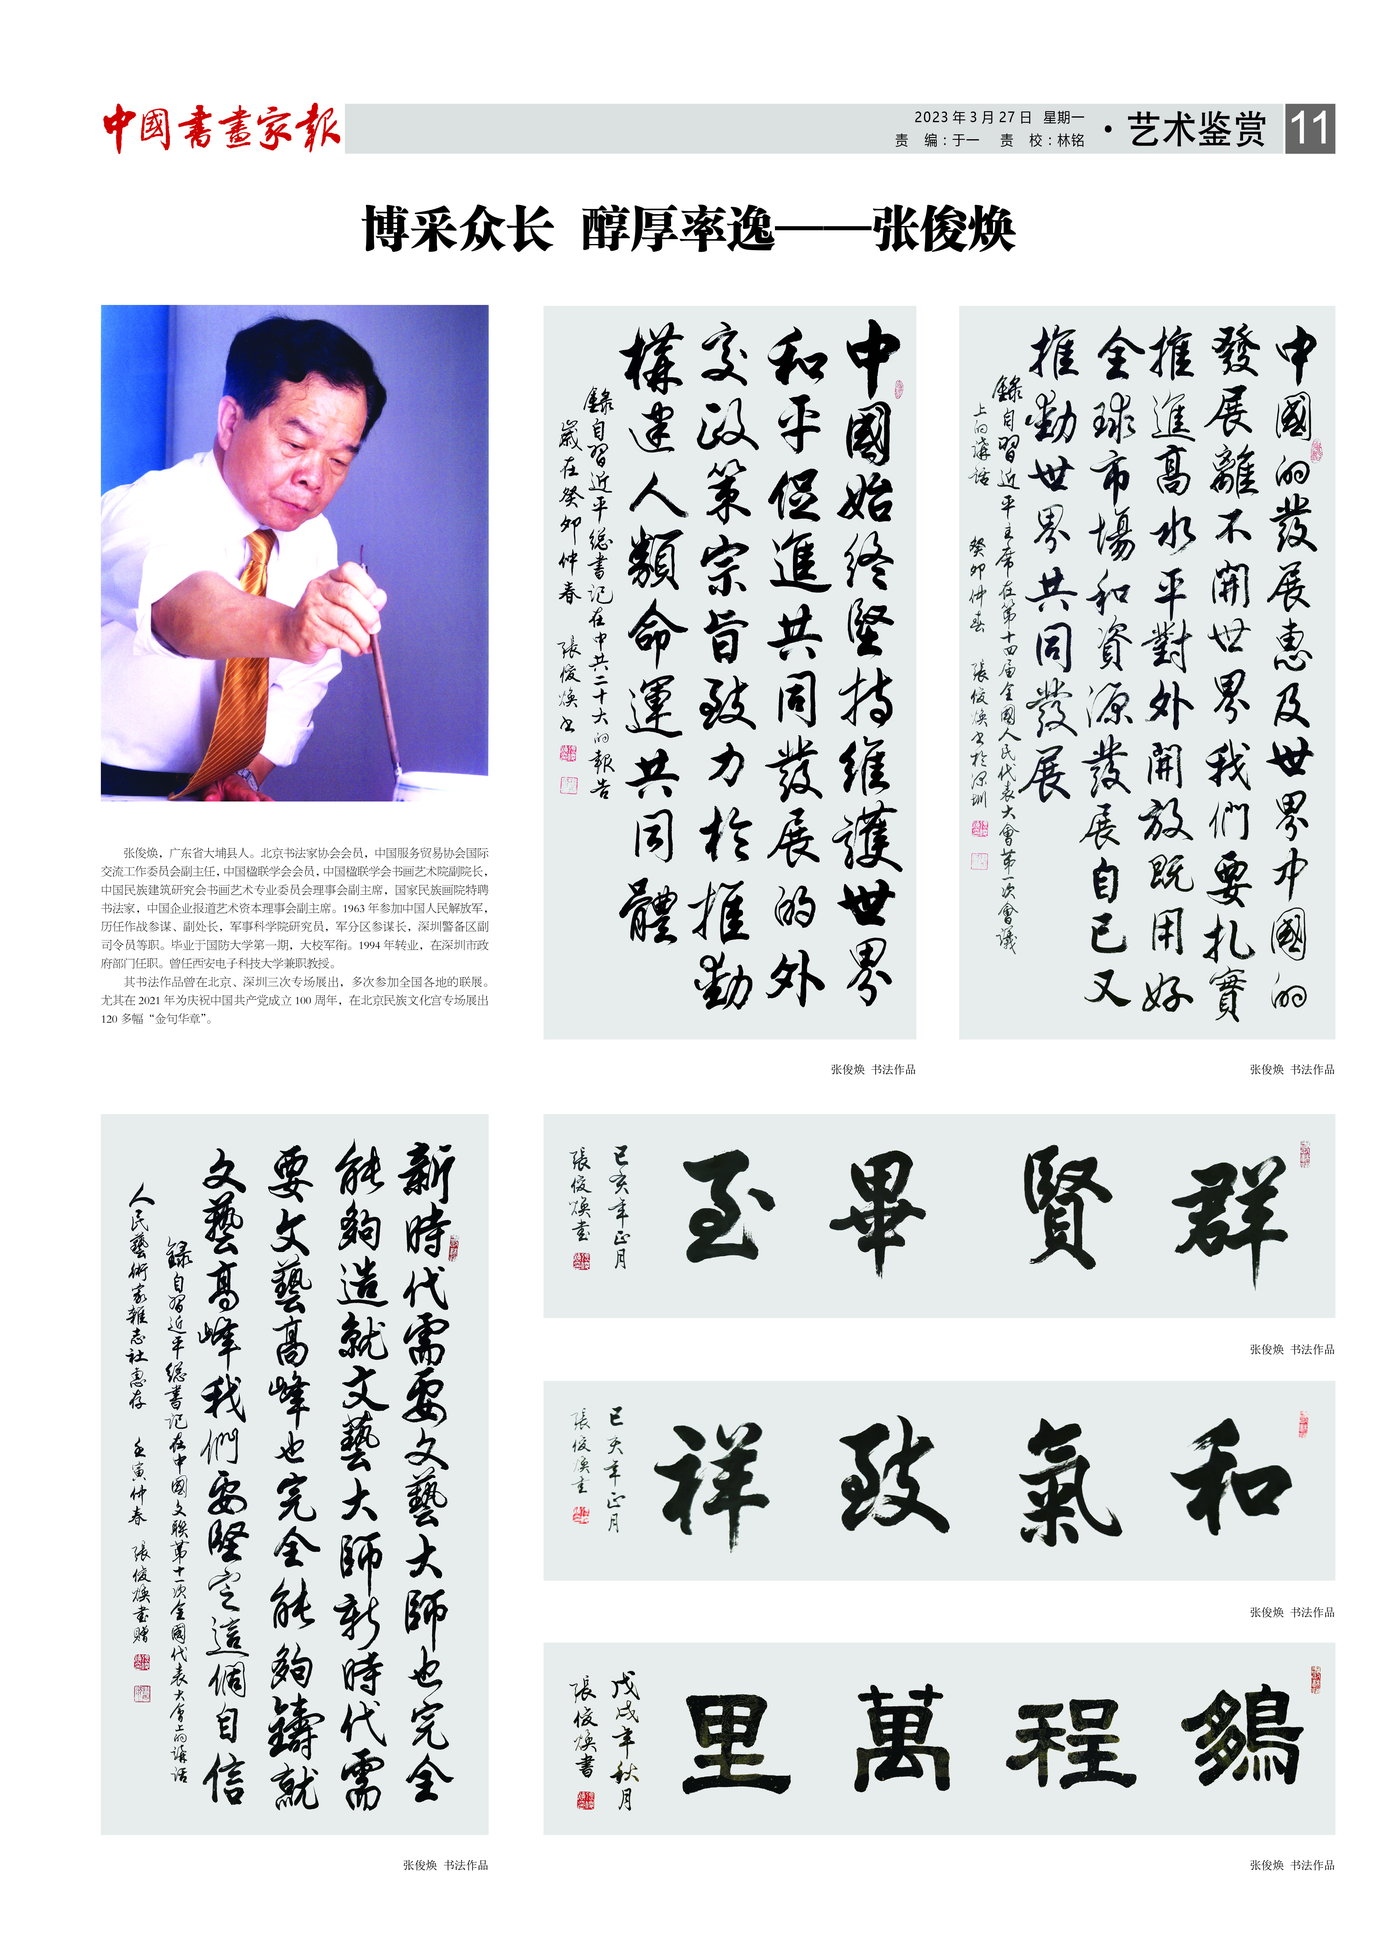 中國書畫家報
2023年3月27日 星期一
责 编：于一 责 校：林铭
·艺术鉴赏
11
博采众长 醇厚率逸——张俊焕
张俊焕，广东省大埔县人。北京书法家协会会员，中国服务贸易协会国际
交流工作委员会副主任，中国楹联学会会员，中国楹联学会书画艺术院副院长，
中国民族建筑研究会书画艺术专业委员会理事会副主席，国家民族画院特聘
书法家，中国企业报道艺术资本理事会副主席。1963年参加中国人民解放军，
历任作战参谋、副处长，军事科学院研究员，军分区参谋长，深圳警备区副
司令员等职。毕业于国防大学第一期，大校军衔。1994年转业，在深圳市政
府部门任职。曾任西安电子科技大学兼职教授。
其书法作品曾在北京、深圳三次专场展出，多次参加全国各地的联展。
尤其在2021年为庆祝中国共产党成立100周年，在北京民族文化宫专场展出
120多幅“金句华章”。
中國始終堅持維護世界
和平促進共同發展的外
交政策宗旨致力於推動
構建人類命運共同體
錄自習近平總書記在中共二十大的報告
歲在癸卯仲春 張俊煥书
张俊焕 书法作品
中國的發展惠及世界中國的
發展離不開世界我們要扎實
推進高水平對外開放既用好
全球市場和資源發展自己又
推動世界共同發展
錄自習近平主席在第十四届全國人民代表大會第一次會議
上的講話 癸卯仲春 張俊煥书於深圳
张俊焕 书法作品
新時代需要文藝大師也完全
能夠造就文藝大師新時代需
要文藝高峰也完全能夠鑄就
文藝高峰我們要堅定這個自信
錄自習近平總書記在中國文联第十一次全國代表大會上的講話
人民藝術家雜志社惠存 壬寅仲春 張俊煥書贈
张俊焕 书法作品
群賢畢至
己亥年正月
張俊煥書
张俊焕 书法作品
和氣致祥
己亥年正月
張俊煥書
张俊焕 书法作品
鵬程萬里
戊戌年秋月
張俊煥書
张俊焕 书法作品